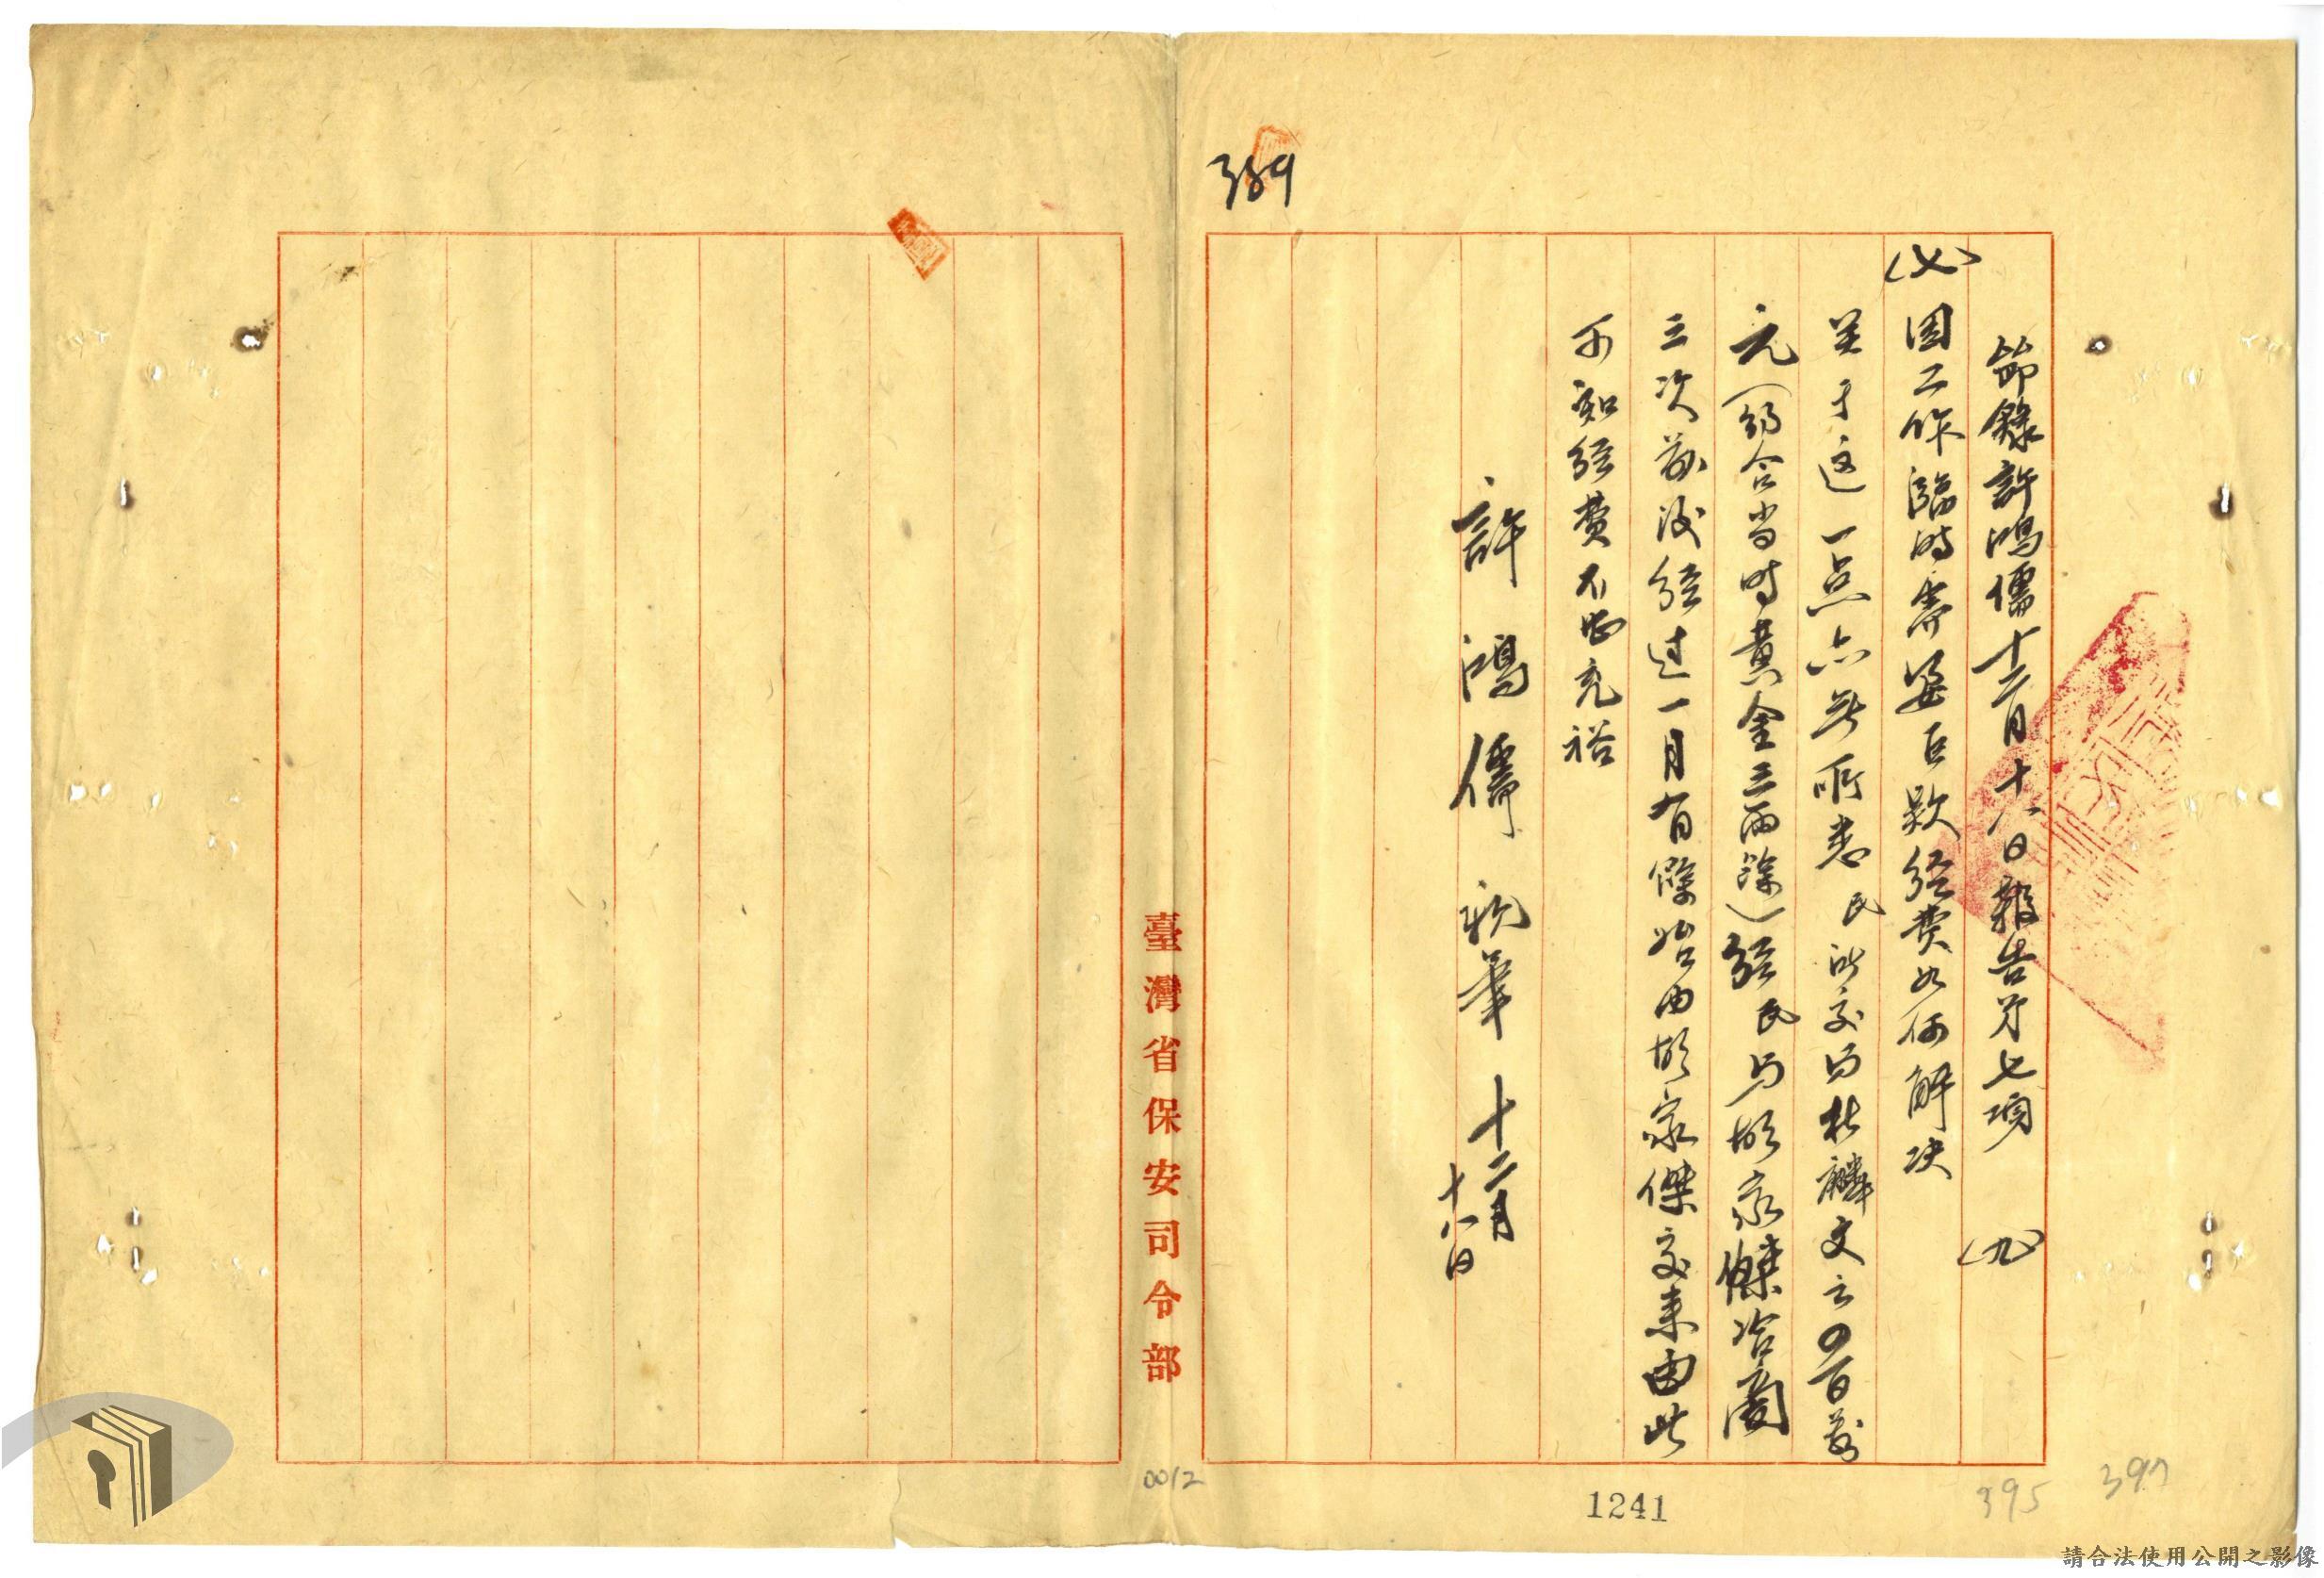 389
節錄許鴻儒十二月十八日報告第七項 (九)
(七)因工作臨時需要巨款經費如何解决
关于这一点亦無所悉民所交与杜麟文之四百萬
元(約合当时黄金三兩餘)經民与胡家傑洽商
三次前後經过一月有餘始由胡家傑交来由此
可知經費不甚充裕
許鴻儒 親筆 十二月十八日
臺灣省保安司令部
0012
1241
395
397
請合法使用公開之影像